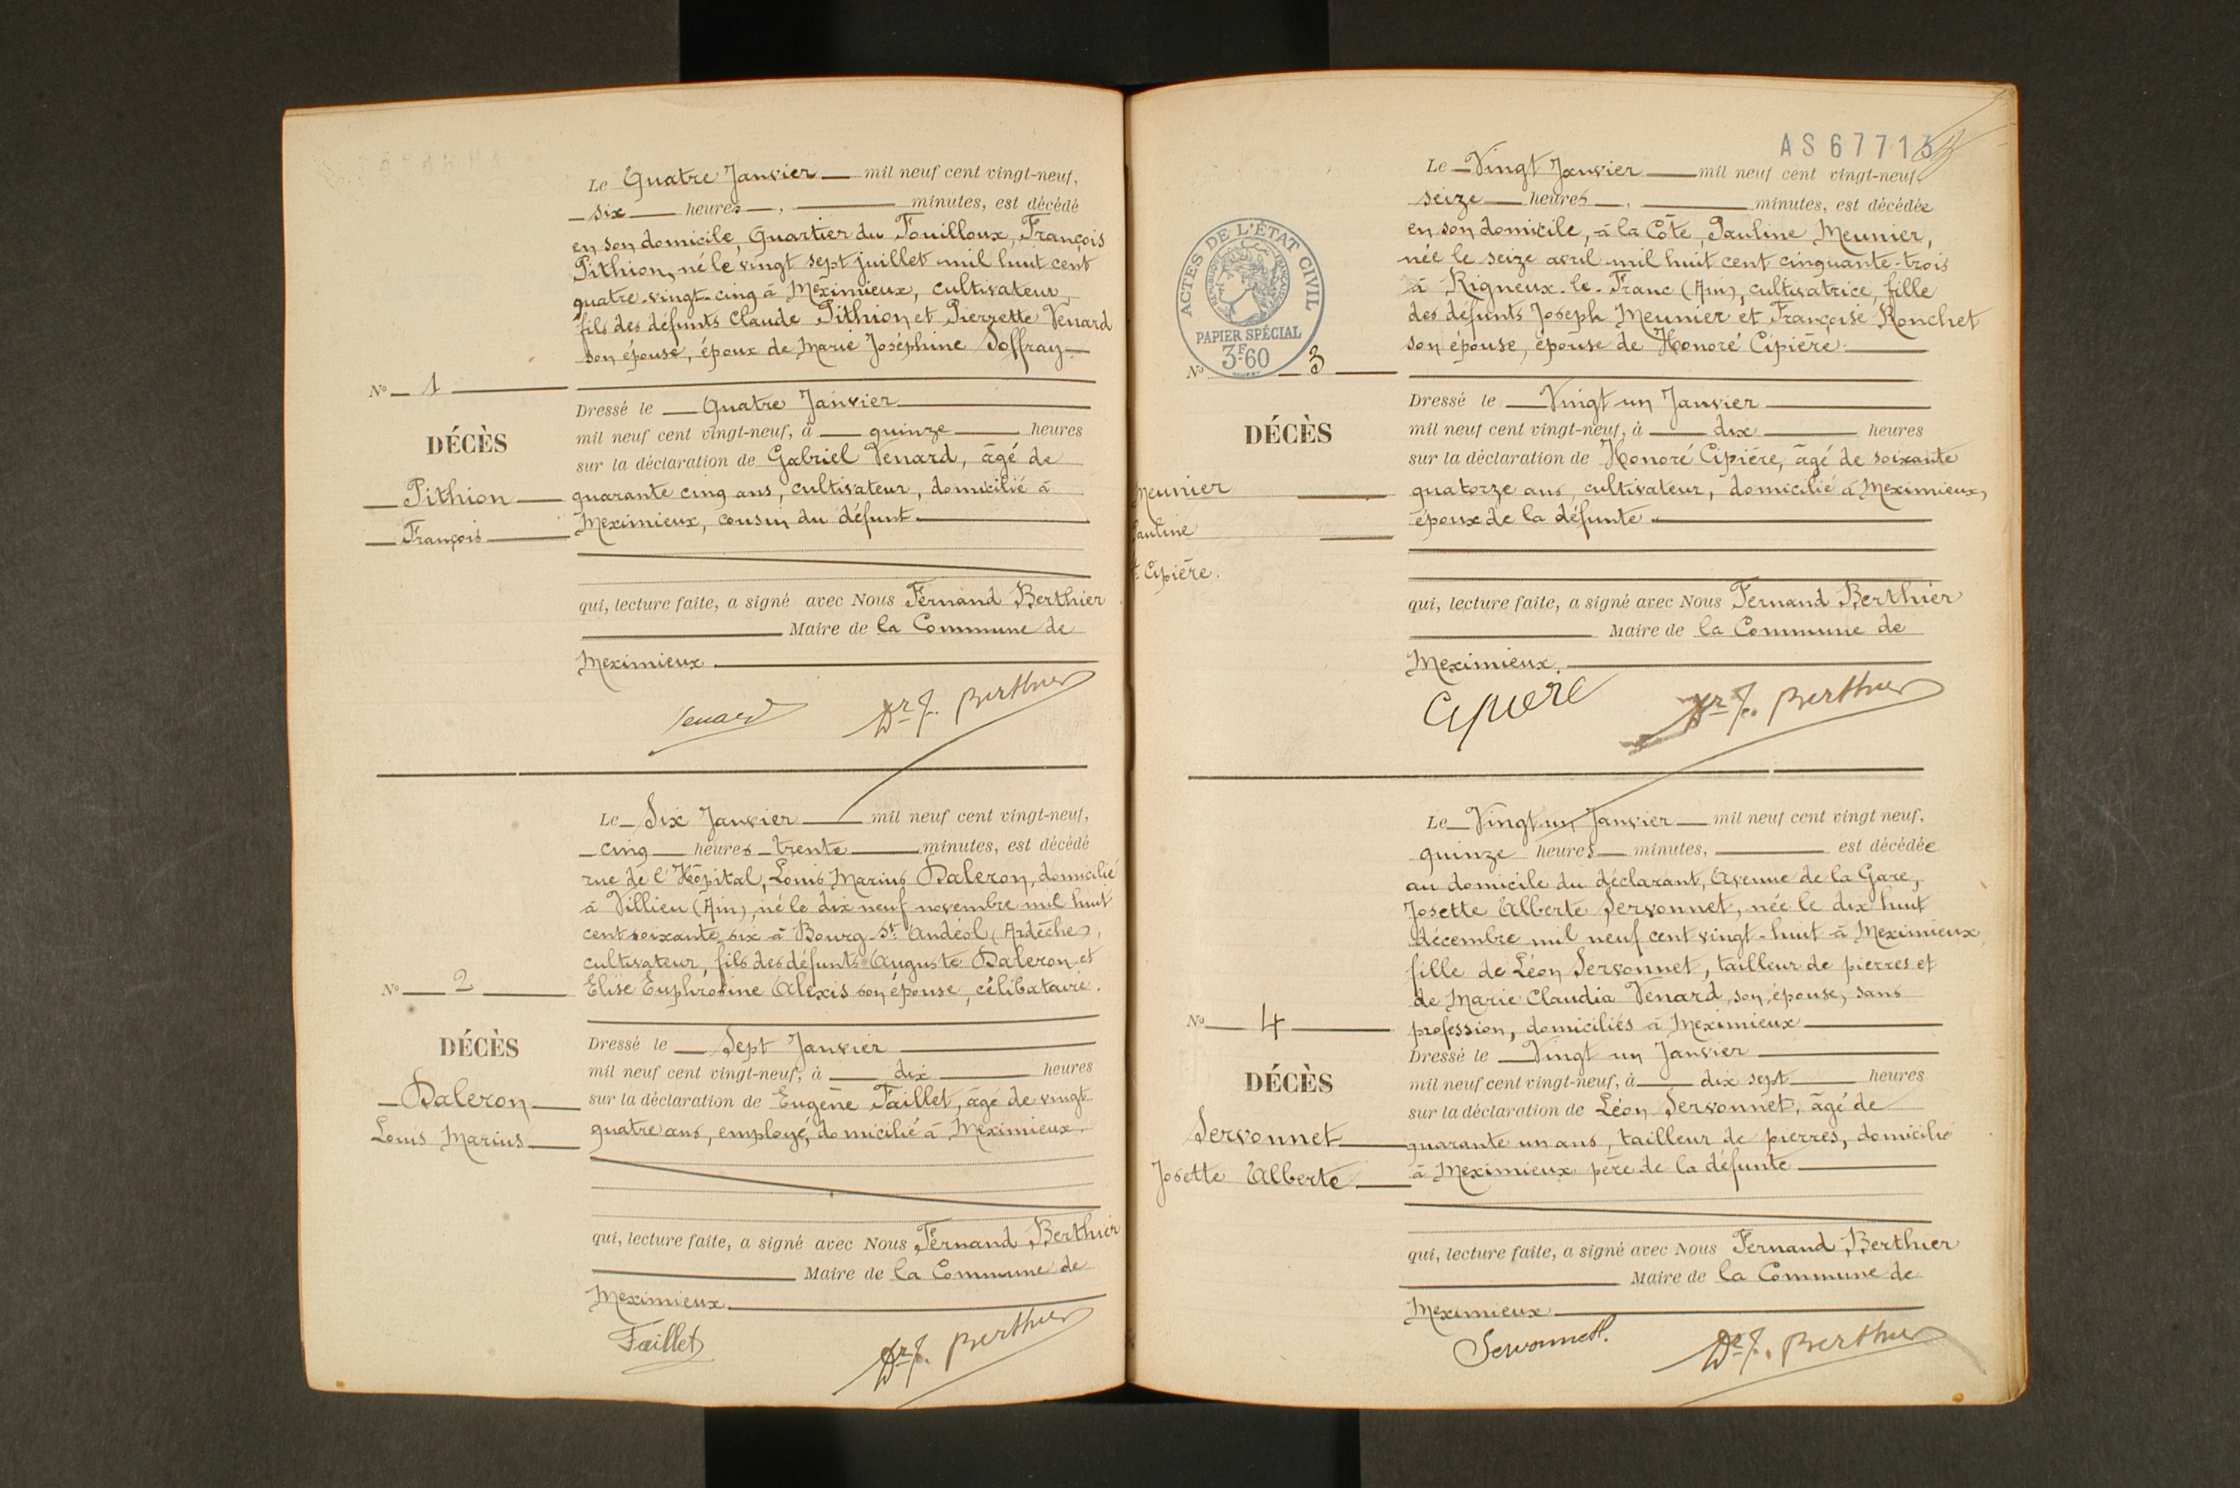 Le Quatre Janvier mil neuf cent vingt-neuf,
six heures, minutes, est décédé
en son domicile, Quartier du Fouilloux, François
Pithion, né le vingt sept juillet mil huit cent
quatre-vingt-cinq à Meximieux, cultivateur,
fils des défunts Claude Pithion et Pierrette Venard
son épouse, époux de Marie Joséphine Soffray
No 1
Dressé le Quatre Janvier
mil neuf cent vingt-neuf, à quinze heures
DÉCÈS
sur la déclaration de Gabriel Venard, âgé de
Pithion
quarante cinq ans, cultivateur, domicilié à
François
Meximieux, cousin du défunt.
qui, lecture faite, a signé avec Nous Fernand Berthier
Maire de la Commune de
Meximieux
Venard Dr F. Berthier
Le Six Janvier mil neuf cent vingt-neuf,
cinq heures trente minutes, est décédé
rue de l'Hôpital, Louis Marius Daleron, domicilié
à Villieu (Ain), né le dix neuf novembre mil huit
cent soixante six à Bourg-St Andéol (Ardèche),
cultivateur, fils des défunts Auguste Daleron et
Elise Euphrosine Alexis son épouse, célibataire.
No 2
DÉCÈS
Dressé le Sept Janvier
mil neuf cent vingt-neuf, à dix heures
Daleron
sur la déclaration de Eugène Faillet, âgé de vingt
Louis Marius
quatre ans, employé, domicilié à Meximieux.
qui, lecture faite, a signé avec Nous Fernand Berthier
Maire de la Commune de
Meximieux
Faillet Dr F. Berthier
AS 67713
Le Vingt Janvier mil neuf cent vingt-neuf,
seize heures, minutes, est décédée
en son domicile, à la Côte, Pauline Meunier,
née le seize avril mil huit cent cinquante-trois
à Rigneux-le-Franc (Ain), cultivatrice, fille
des défunts Joseph Meunier et Françoise Ronchet
son épouse, épouse de Honoré Cipière
ACTES DE L'ÉTAT CIVIL
PAPIER SPÉCIAL
3F60
No 3
DÉCÈS
Dressé le Vingt un Janvier
mil neuf cent vingt-neuf, à dix heures
sur la déclaration de Honoré Cipière, âgé de soixante
Meunier
quatorze ans, cultivateur, domicilié à Meximieux,
Pauline
époux de la défunte.
Cipière.
qui, lecture faite, a signé avec Nous Fernand Berthier
Maire de la Commune de
Meximieux.
Cipière Dr F. Berthier
Le Vingt un Janvier mil neuf cent vingt neuf,
quinze heures minutes, est décédée
au domicile du déclarant, Avenue de la Gare,
Josette Alberte Servonnet, née le dix huit
décembre mil neuf cent vingt-huit à Meximieux,
fille de Léon Servonnet, tailleur de pierres et
de Marie Claudia Venard, son épouse, sans
profession, domiciliés à Meximieux
No 4
Dressé le Vingt un Janvier
DÉCÈS
mil neuf cent vingt-neuf, à dix sept heures
sur la déclaration de Léon Servonnet, âgé de
Servonnet
quarante un ans, tailleur de pierres, domicilié
Josette Alberte
à Meximieux père de la défunte
qui, lecture faite, a signé avec Nous Fernand Berthier
Maire de la Commune de
Meximieux
Servonnet. Dr F. Berthier